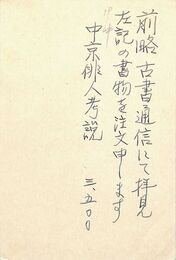 前略 古書通信にて拝見
左記の書物を注文申します
中京俳人考説
三、五〇〇